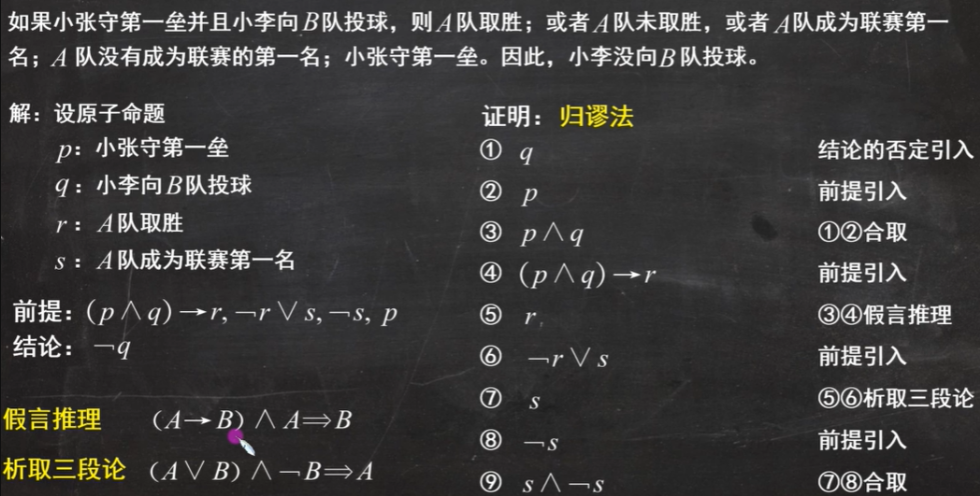 如果小张守第一垒并且小李向B队投球，则A队取胜；或者A队未取胜，或者A队成为联赛第一
名；A队没有成为联赛的第一名；小张守第一垒。因此，小李没向B队投球。
解：设原子命题
p：小张守第一垒
q：小李向B队投球
r：A队取胜
s：A队成为联赛第一名
前提：(p∧q)→r,¬r∨s,¬s, p
结论：¬q
假言推理 (A→B)∧A⇒B
析取三段论 (A∨B)∧¬B⇒A
证明：归谬法
① q 结论的否定引入
② p 前提引入
③ p∧q ①②合取
④ (p∧q)→r 前提引入
⑤ r ③④假言推理
⑥ ¬r∨s 前提引入
⑦ s ⑤⑥析取三段论
⑧ ¬s 前提引入
⑨ s∧¬s ⑦⑧合取